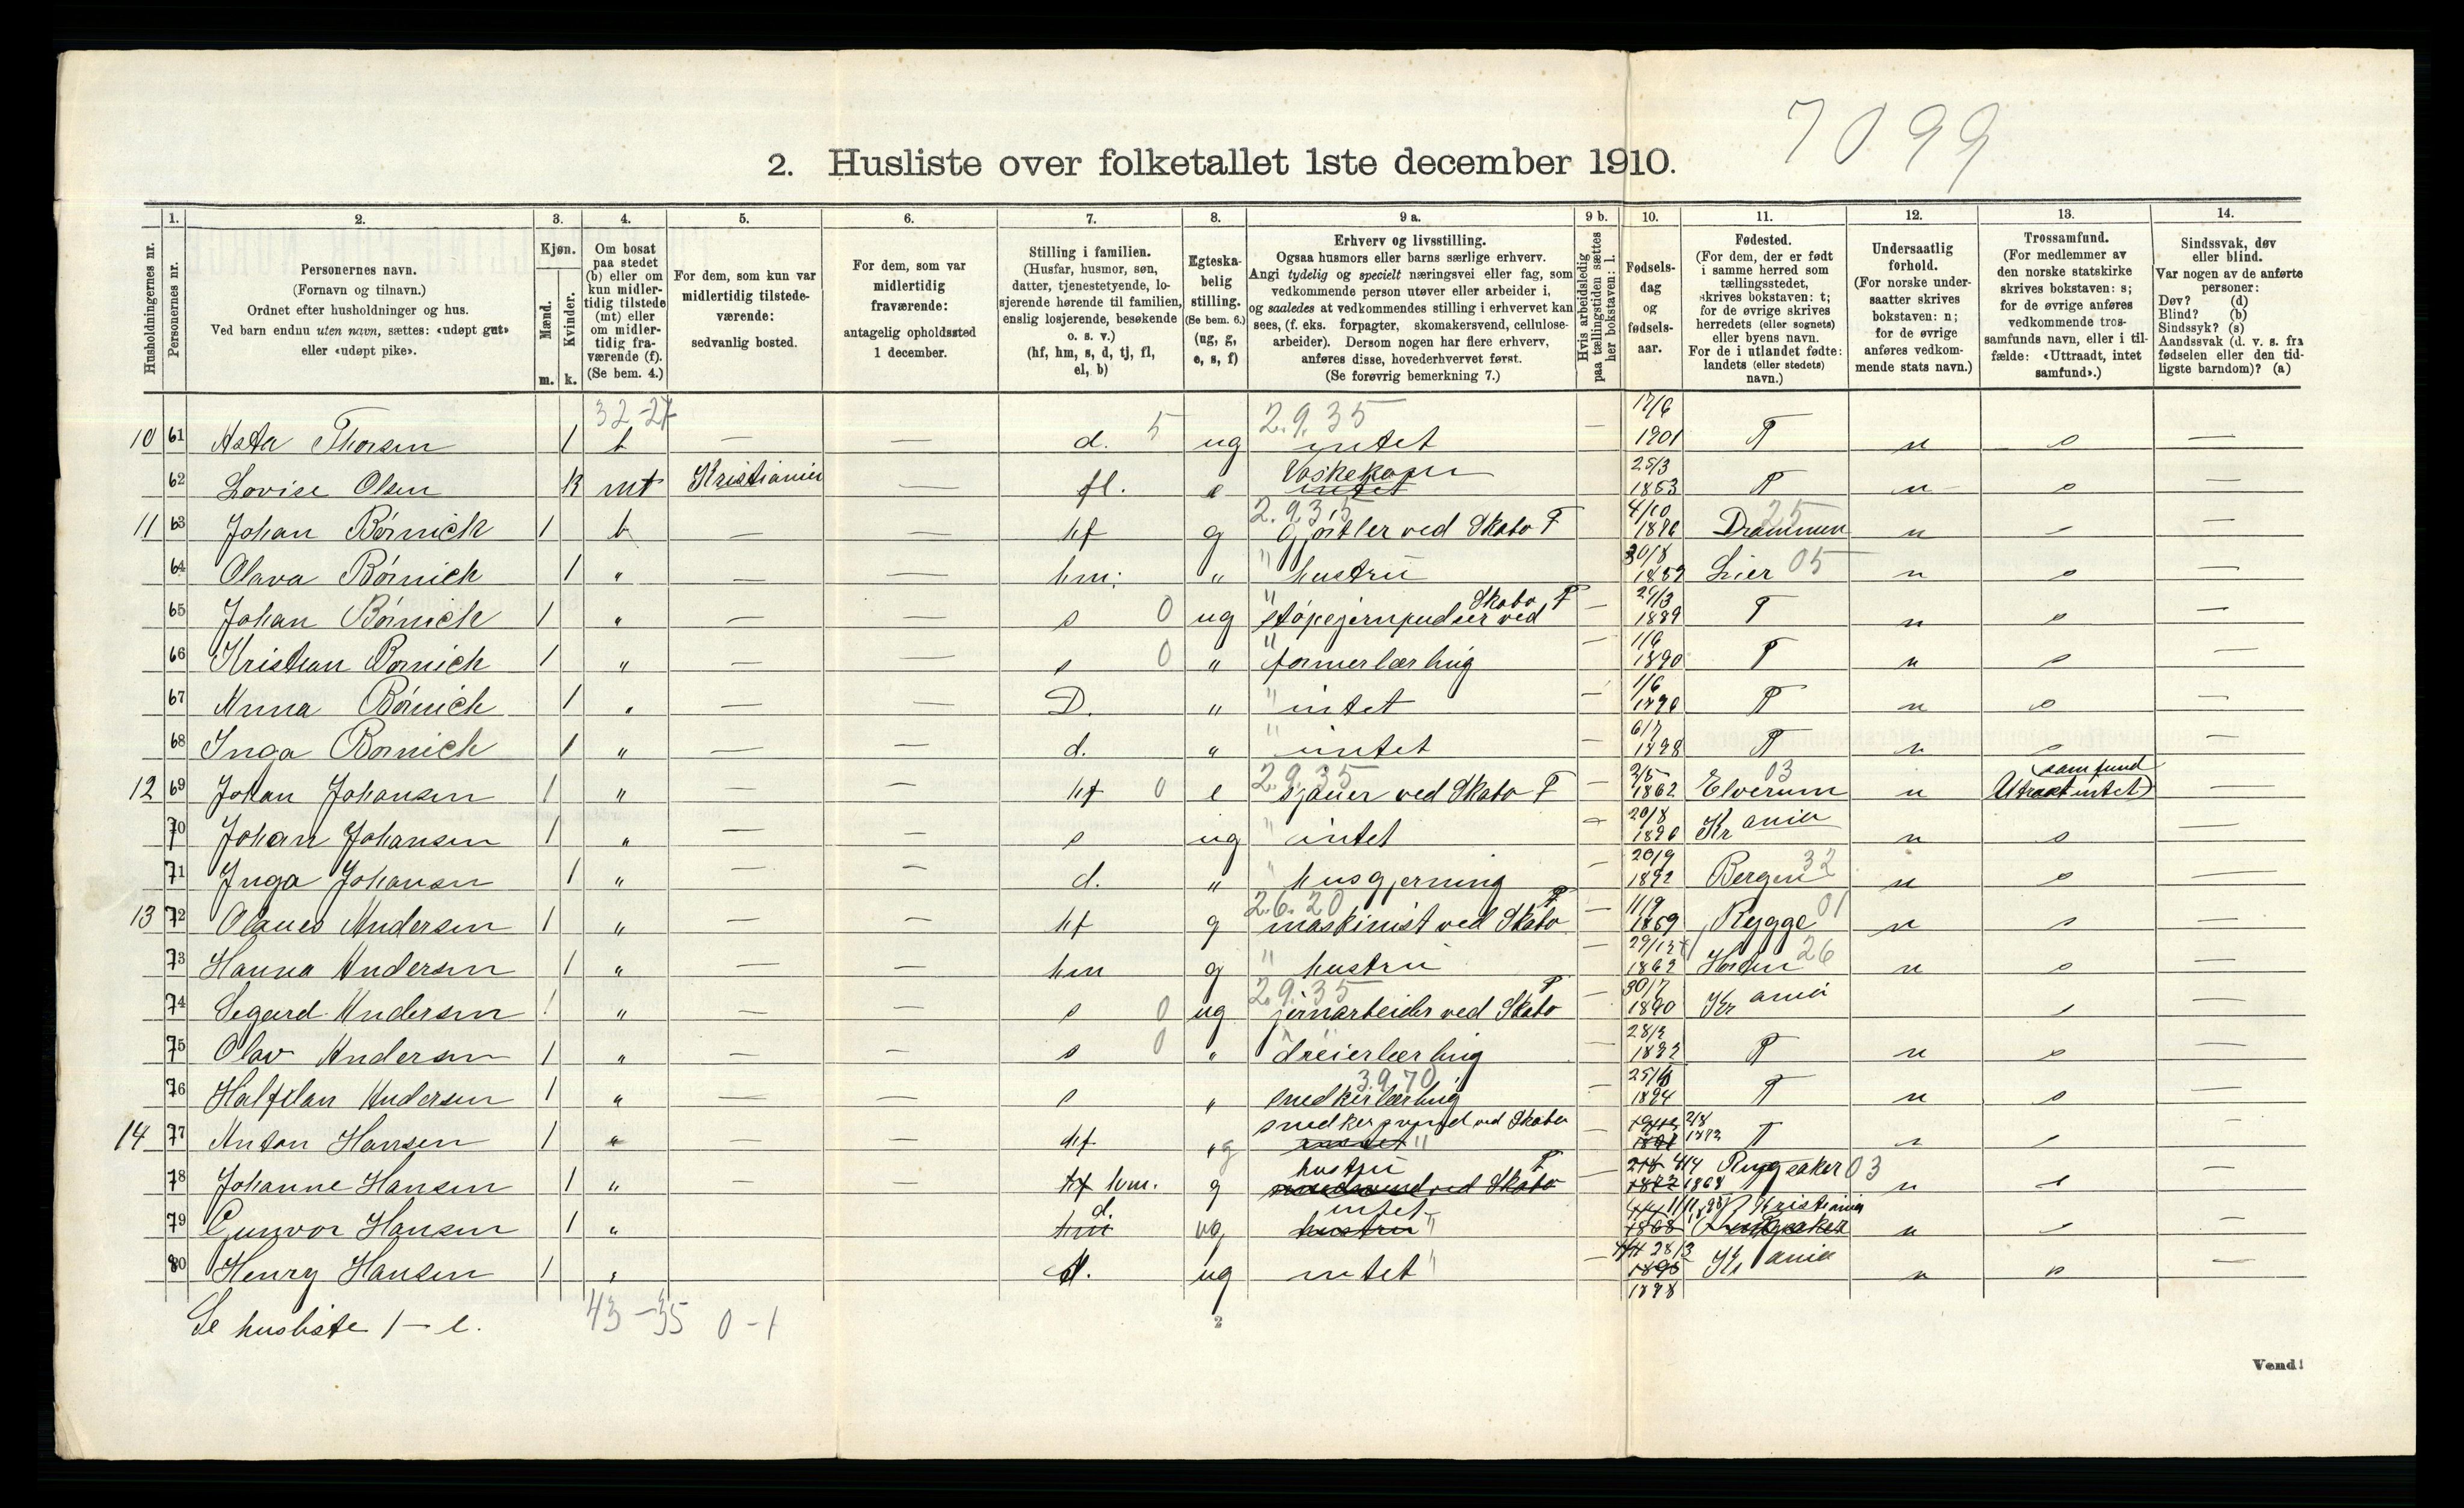 7099
2. Husliste over folketallet 1ste december 1910.
Husholdningernes nr.
1. Personernes nr.
2. Personernes navn.
(Fornavn og tilnavn.)
Ordnet efter husholdninger og hus.
Ved barn endnu uten navn, sættes: «udøpt gut»
eller «udøpt pike».
3. Kjøn.
Mænd. m.
Kvinder. k.
4. Om bosat
paa stedet
(b) eller om
kun midler-
tidig tilstede
(mt) eller
om midler-
tidig fra-
værende (f).
(Se bem. 4.)
5. For dem, som kun var
midlertidig tilstede-
værende:
sedvanlig bosted.
6. For dem, som var
midlertidig
fraværende:
antagelig opholdssted
1 december.
7. Stilling i familien.
(Husfar, husmor, søn,
datter, tjenestetyende, lo-
sjerende hørende til familien,
enslig losjerende, besøkende
o. s. v.)
(hf, hm, s, d, tj, fl,
el, b)
8. Egteska-
belig
stilling.
(Se bem. 6.)
(ug, g,
e, s, f)
9 a. Erhverv og livsstilling.
Ogsaa husmors eller barns særlige erhverv.
Angi tydelig og specielt næringsvei eller fag, som
vedkommende person utøver eller arbeider i,
og saaledes at vedkommendes stilling i erhvervet kan
sees, (f. eks. forpagter, skomakersvend, cellulose-
arbeider). Dersom nogen har flere erhverv,
anføres disse, hovederhvervet først.
(Se forøvrig bemerkning 7.)
9 b. Hvis arbeidsledig
paa tællingstiden sættes
her bokstaven: l.
10. Fødsels-
dag
og
fødsels-
aar.
11. Fødested.
(For dem, der er født
i samme herred som
tællingsstedet,
skrives bokstaven: t;
for de øvrige skrives
herredets (eller sognets)
eller byens navn.
For de i utlandet fødte:
landets (eller stedets)
navn.)
12. Undersaatlig
forhold.
(For norske under-
saatter skrives
bokstaven: n;
for de øvrige
anføres vedkom-
mende stats navn.)
13. Trossamfund.
(For medlemmer av
den norske statskirke
skrives bokstaven: s;
for de øvrige anføres
vedkommende tros-
samfunds navn, eller i til-
fælde: «Uttraadt, intet
samfund».)
14. Sindssvak, døv
eller blind.
Var nogen av de anførte
personer:
Døv? (d)
Blind? (b)
Sindssyk? (s)
Aandssvak (d. v. s. fra
fødselen eller den tid-
ligste barndom)? (a)
32-27 2.9.35
10 61 Asta Thorsen 1 b — — d. 5 ug intet — 17/6 1901 T n s —
62 Lovise Olsen k mt Kristiania — fl. e Vaskekone intet 25/3 1853 T n s —
11 63 Johan Børnich 1 b — — hf g 2.9.35 Gjørtler ved Skabo F 4/10 Drammen 25 n s
64 Olava Børnich 1 " — — hm: " " hustru 30/8 Lier 05 n s —
65 Johan Børnich 1 " — — s 0 ug støpejernpudser ved Skabo F — 1889 T n s —
66 Kristian Børnich 1 " — — s 0 " formerlærling — 1890 T n s —
67 Anna Børnich 1 " — — D. " " intet — 1/6 T n s —
68 Inga Børnich 1 " — — d. " " intet — 6/7 1898 T n s —
12 69 Johan Johansen 1 " — — hf 0 e 2.9.35 Sjauer ved Skabo F — 2/5 1862 Elverum 03 n Utraadt intet samfund —
70 Johan Johansen 1 " — — s ug " intet — 20/8 1890 Kr ania n s —
71 Inga Johansen 1 " — — d. " " husgjerning — 20/9 1892 Bergen 32 n s —
13 72 Olaues Andersen 1 " — — hf g 2.6.20 maskinist ved Skabo F — 11/9 1859 Rygge 01 n s —
73 Hanna Andersen 1 " — — hm g " hustru — 29/12 1862 26 n s —
74 Segurd Andersen 1 " — — s 0 ug 2.9.35 jernarbeider ved Skabo F — 30/7 1890 Kr ania s —
75 Olav Andersen 1 " — — s 0 " dreierlærling — 28/2 1892 T n s —
76 Halfdan Andersen 1 " — — s " 3.9.70 snedkerlærling — 1894 T n s —
14 77 Anton Hansen 1 " — — hf g snedkersvend ved Skabo " 2/8 1872 T n s —
78 Johanne Hansen 1 " hf hm. g hustru F — 4/4 1868 Ringsaker 03 n s —
79 Gunvor Hansen 1 " d. hm ug intet hustru " 1868 Kristiania Ringsaker n s —
80 Henry Hansen 1 " ug intet " — 28/3 1895 1898 Kr ania n s —
Se husliste 1 – e. 43-35 0-1
2
Vend!